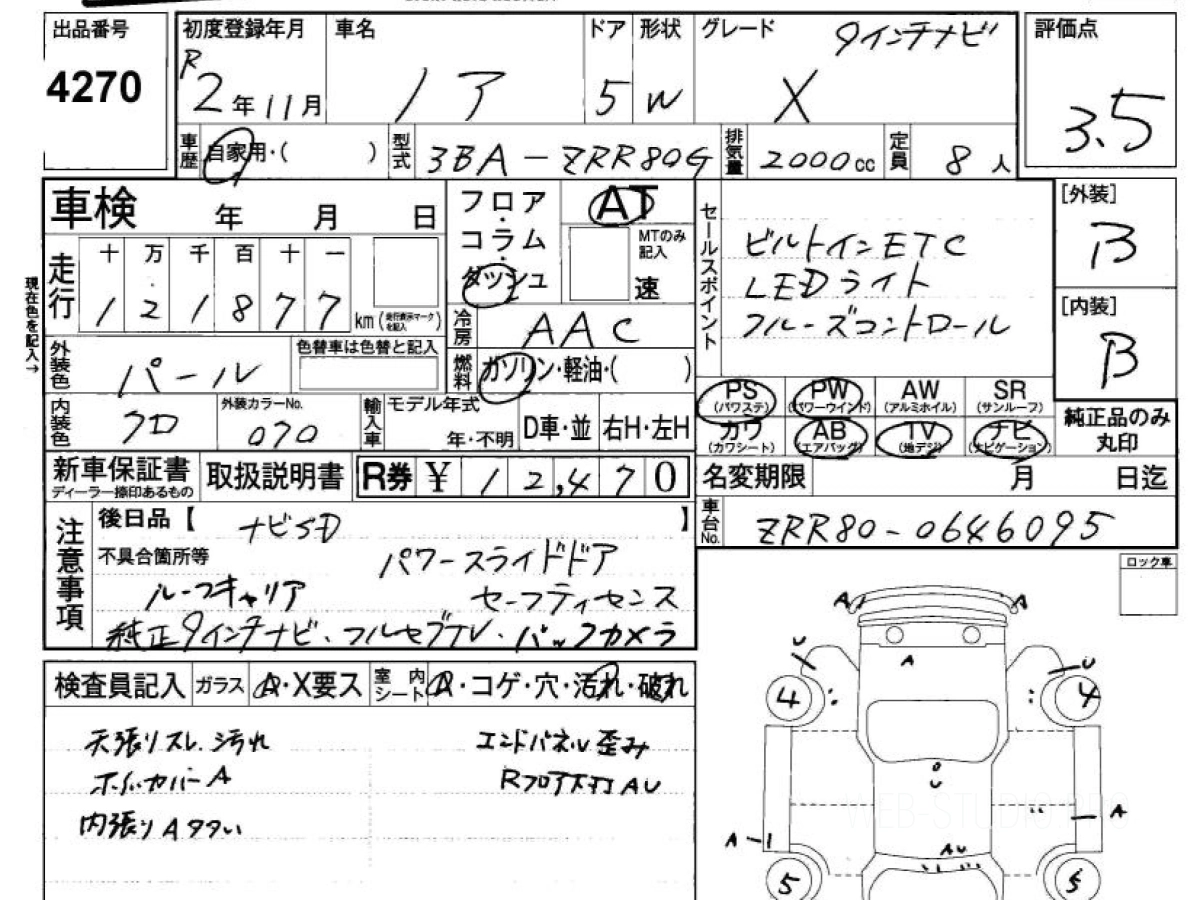 出品番号 初度登録年月 車名 ドア 形状 グレード 9インチナビ 評価点
4270 R2年11月 ノア 5 W X 3.5
車歴 自家用・( ) 型式 3BA-ZRR80G 排気量 2000cc 定員 8人
車検 年 月 日 フロア・コラム・ダッシュ AT セールスポイント [外装]
MTのみ記入 速 ビルトインETC B
現在色を記入→ 走行 十 万 千 百 十 一 LEDライト
1 2 1 8 7 7 km(走行表示マークを記入) 冷房 AAC クルーズコントロール [内装]
外装色 パール 色替車は色替と記入 燃料 ガソリン・軽油・( ) B
内装色 クロ 外装カラーNo. 070 輸入車 モデル年式 年・不明 D車・並 右H・左H
PS(パワステ) PW(パワーウインド) AW(アルミホイル) SR(サンルーフ) 純正品のみ丸印
カワ(カワシート) AB(エアバッグ) TV(地デジ) ナビ(ナビゲーション)
新車保証書 ディーラー捺印あるもの 取扱説明書 R券 ¥12,470 名変期限 月 日迄
注意事項 後日品【 ナビSD 】 車台No. ZRR80-0646095
不具合箇所等 パワースライドドア ロック車
ルーフキャリア セーフティセンス
純正9インチナビ.フルセグTV.バックカメラ
検査員記入 ガラス A・X要ス 室内シート A・コゲ・穴・汚れ・破れ
天張リスレ.汚れ エンドパネル歪み
ホイルカバーA Rフロア下 AU
内張りA
A A
U U
A
4 4
U
A
A
AU
5 5
WEB-STUDIO.PRO